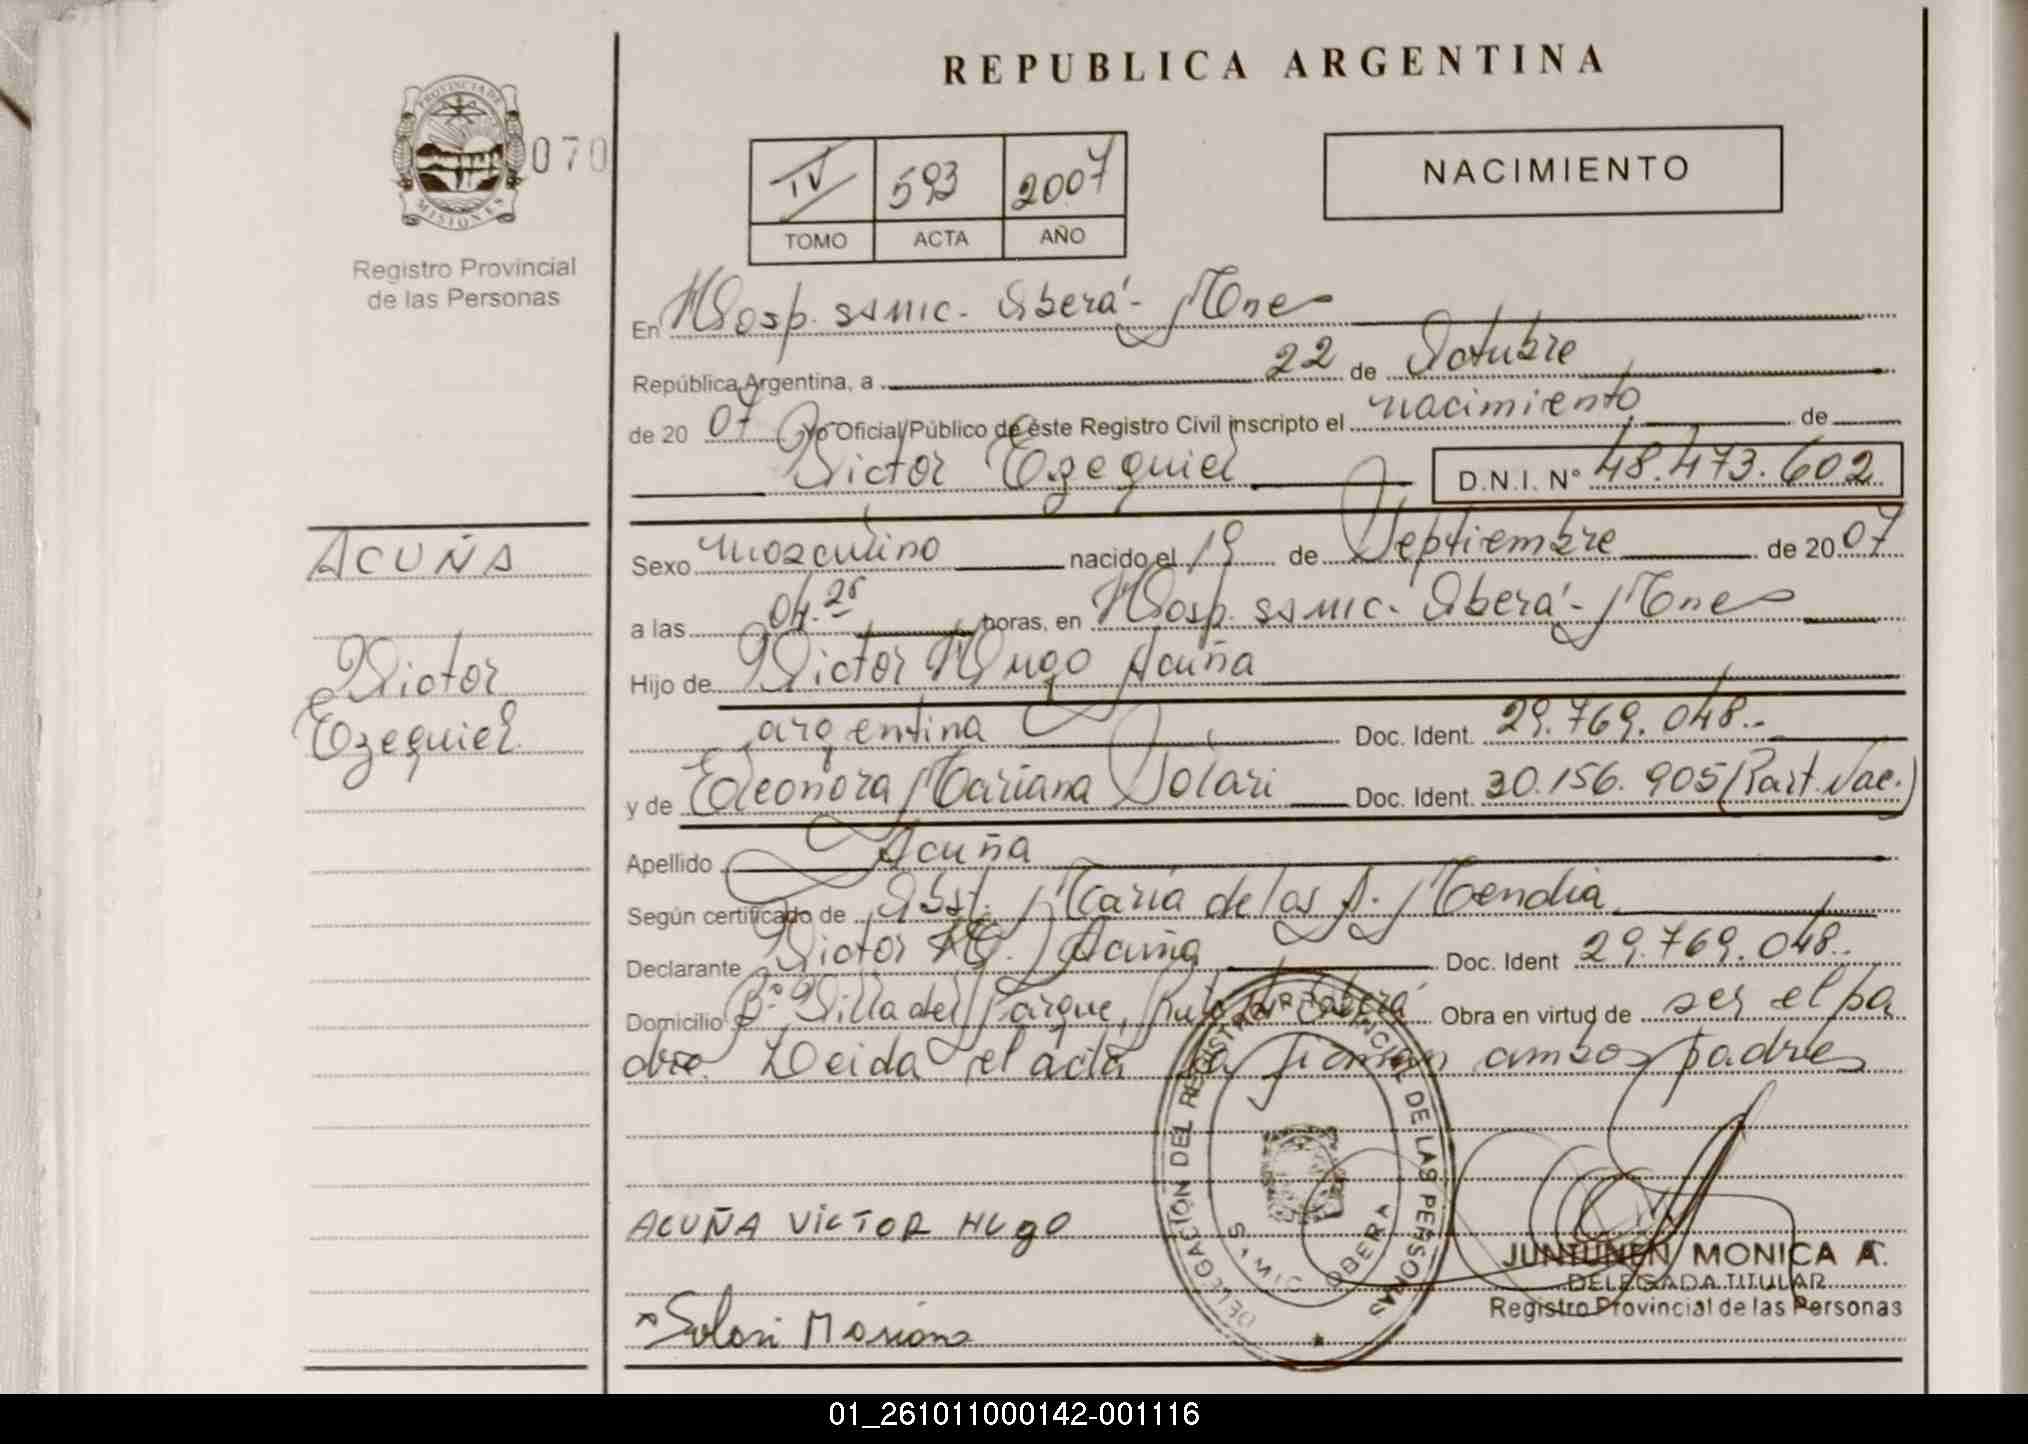 REPUBLICA ARGENTINA
PROVINCIA DE
MISIONES
070
Registro Provincial
de las Personas
IV 593 2007
TOMO ACTA AÑO
NACIMIENTO
En Hosp. SAMIC. Oberá - Mnes
República Argentina, a 22 de Octubre
de 20 07 Yo Oficial Público de éste Registro Civil inscripto el nacimiento de
Victor Ezequiel D.N.I. Nº 48.473.602
ACUÑA
Victor
Ezequiel
Sexo masculino nacido el 19 de Septiembre de 20 07
a las 04.25 horas, en Hosp. SAMIC. Oberá - Mnes
Hijo de Victor Hugo Acuña
argentina Doc. Ident. 29.769.048..
y de Eleonora Mariana Solari Doc. Ident. 30.156.905 (Part. Nac.)
Apellido Acuña
Según certificado de Obst. María de los A. Mendia
Declarante Victor H. Acuña Doc. Ident 29.769.048..
Domicilio Bº Villa del Parque, Oberá Obra en virtud de ser el pa
dre. Leida el acta la firman ambos padres
ACUÑA VICTOR HUGO
Solari Mariana
DELEGACIÓN DEL REGISTRO PROVINCIAL DE LAS PERSONAS
SAMIC OBERA
JUNTUNEN MONICA A.
DELEGADA TITULAR
Registro Provincial de las Personas
01_261011000142-001116